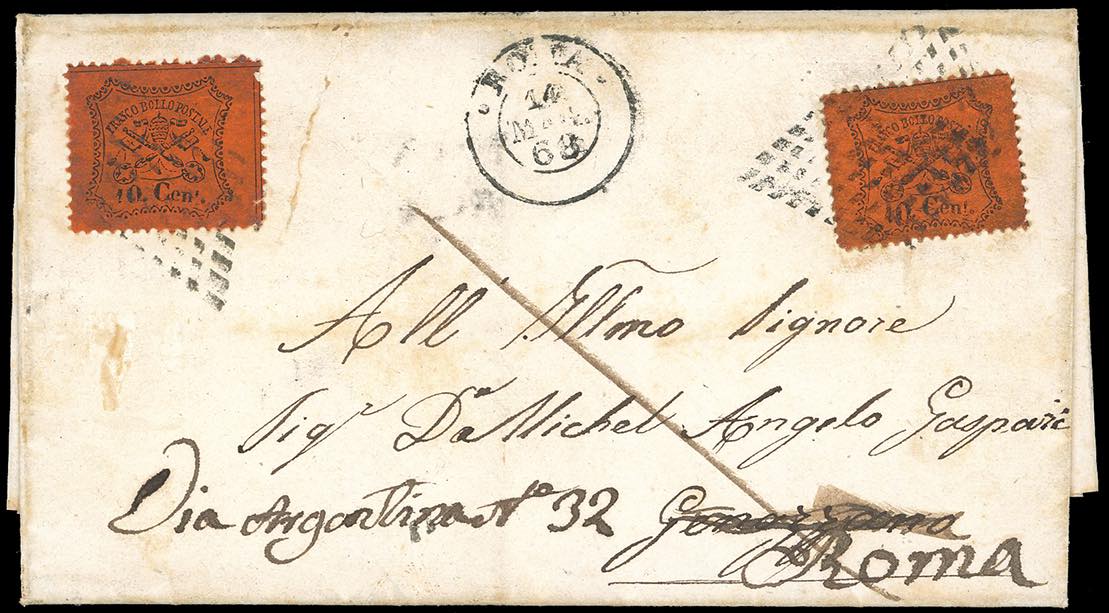 FRANCO BOLLO POSTALE
10. Cent.
ROMA
14
MAR.
68
FRANCO BOLLO POSTALE
10. Cent.
All' Illmo Signore
Sigr Dn Michel Angelo Gaspari
Via Argentina No 32 Genazzano
Roma